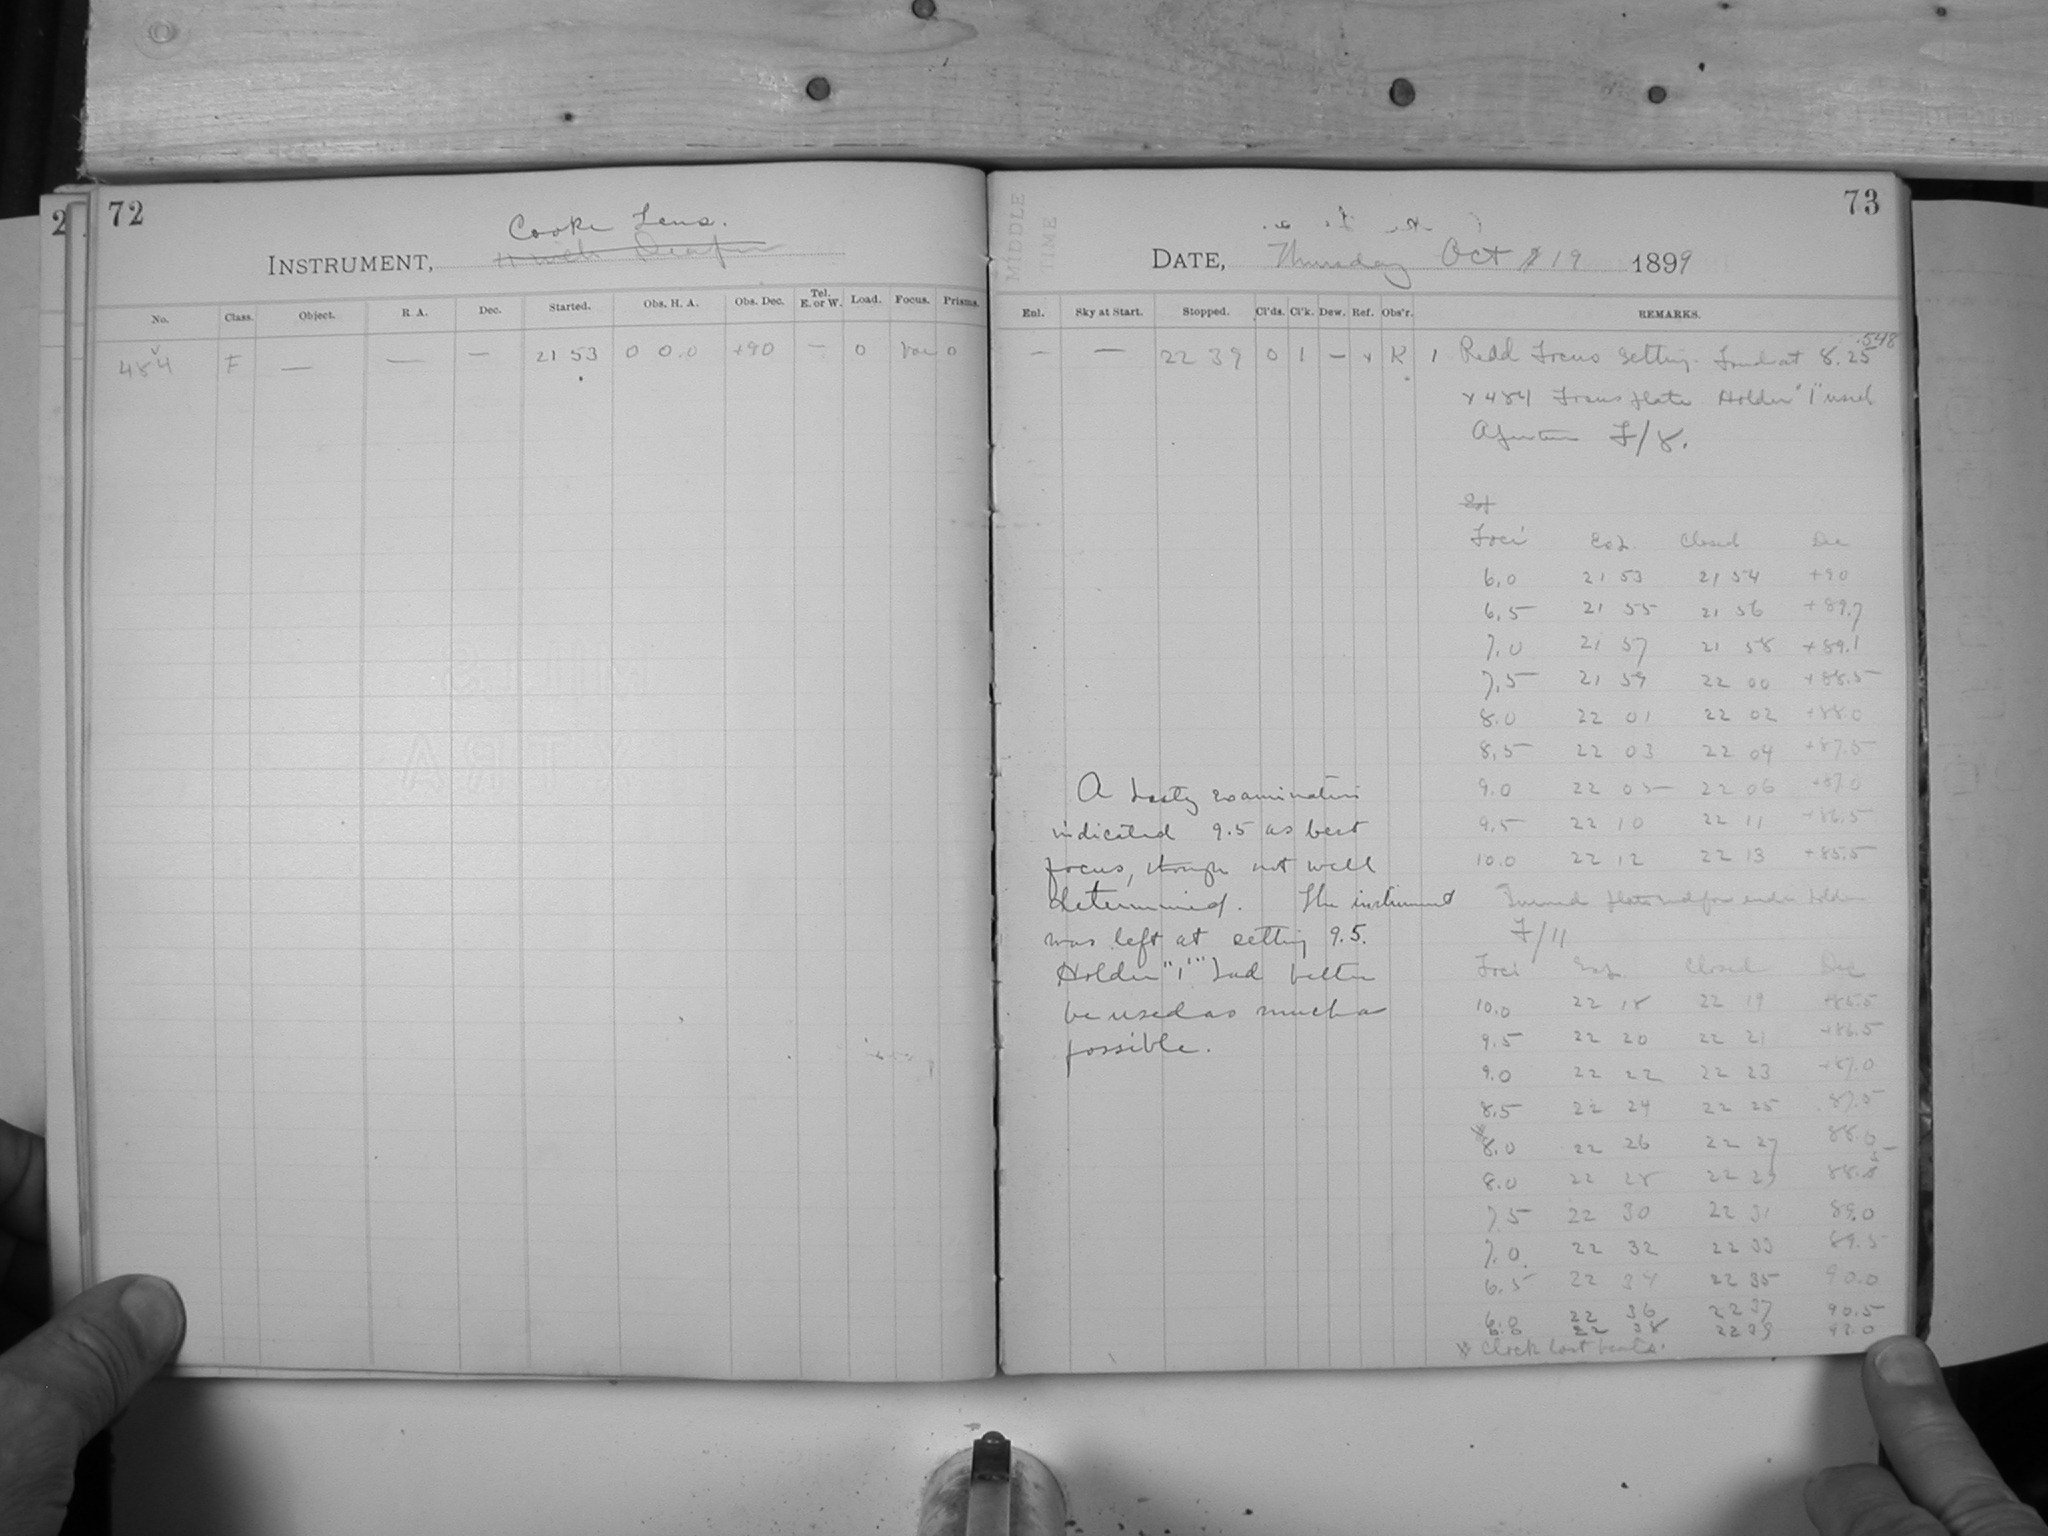 2
72
Cooke Lens.
INSTRUMENT, 11 inch Draper
No. Class. Object. R A. Dec. Started. Obs. H. A. Obs. Dec. Tel. E. or W. Load. Focus. Prisms.
484 F — — — 21 53 0 0.0 +90 — 0 Var 0
73
MIDDLE
TIME
DATE, Thursday Oct 19 1899
Enl. Sky at Start. Stopped. Cl'ds. Cl'k. Dew. Ref. Obs'r. REMARKS.
.548
— — 22 39 0 1 — x K 1 Focus Setting. Found at 8.25
x 484 Focus plate Holder "1" used
Aperture F/8.
Exp
Foci Exp. Closed Dec
6.0 21 53 21 54 +90
6.5 21 55 21 56 +89.7
7.0 21 57 21 58 +89.1
7.5 21 59 22 00 +88.5
8.0 22 01 22 02 +88.0
8.5 22 03 22 04 +87.5
9.0 22 05 22 06 +87.0
9.5 22 10 22 11 +86.5
10.0 22 12 22 13 +85.5
Turned plate end for end in holder
F/11
Foci Exp. Closed Dec
10.0 22 18 22 19 +85.5
9.5 22 20 22 21 +86.5
9.0 22 22 22 23 +87.0
8.5 22 24 22 25 87.5
8.0 22 26 22 27 88.0
8.0 22 28 22 29 88.5
7.5 22 30 22 31 89.0
7.0 22 32 22 33 89.5
6.5 22 34 22 35 90.0
6.0 22 36 22 37 90.5
6.0 22 38 22 39
Clock lost beats.
A hasty examination
indicated 9.5 as best
focus, though not well
determined. The instrument
was left at setting 9.5.
Holder "1" had better
be used as much as
possible.